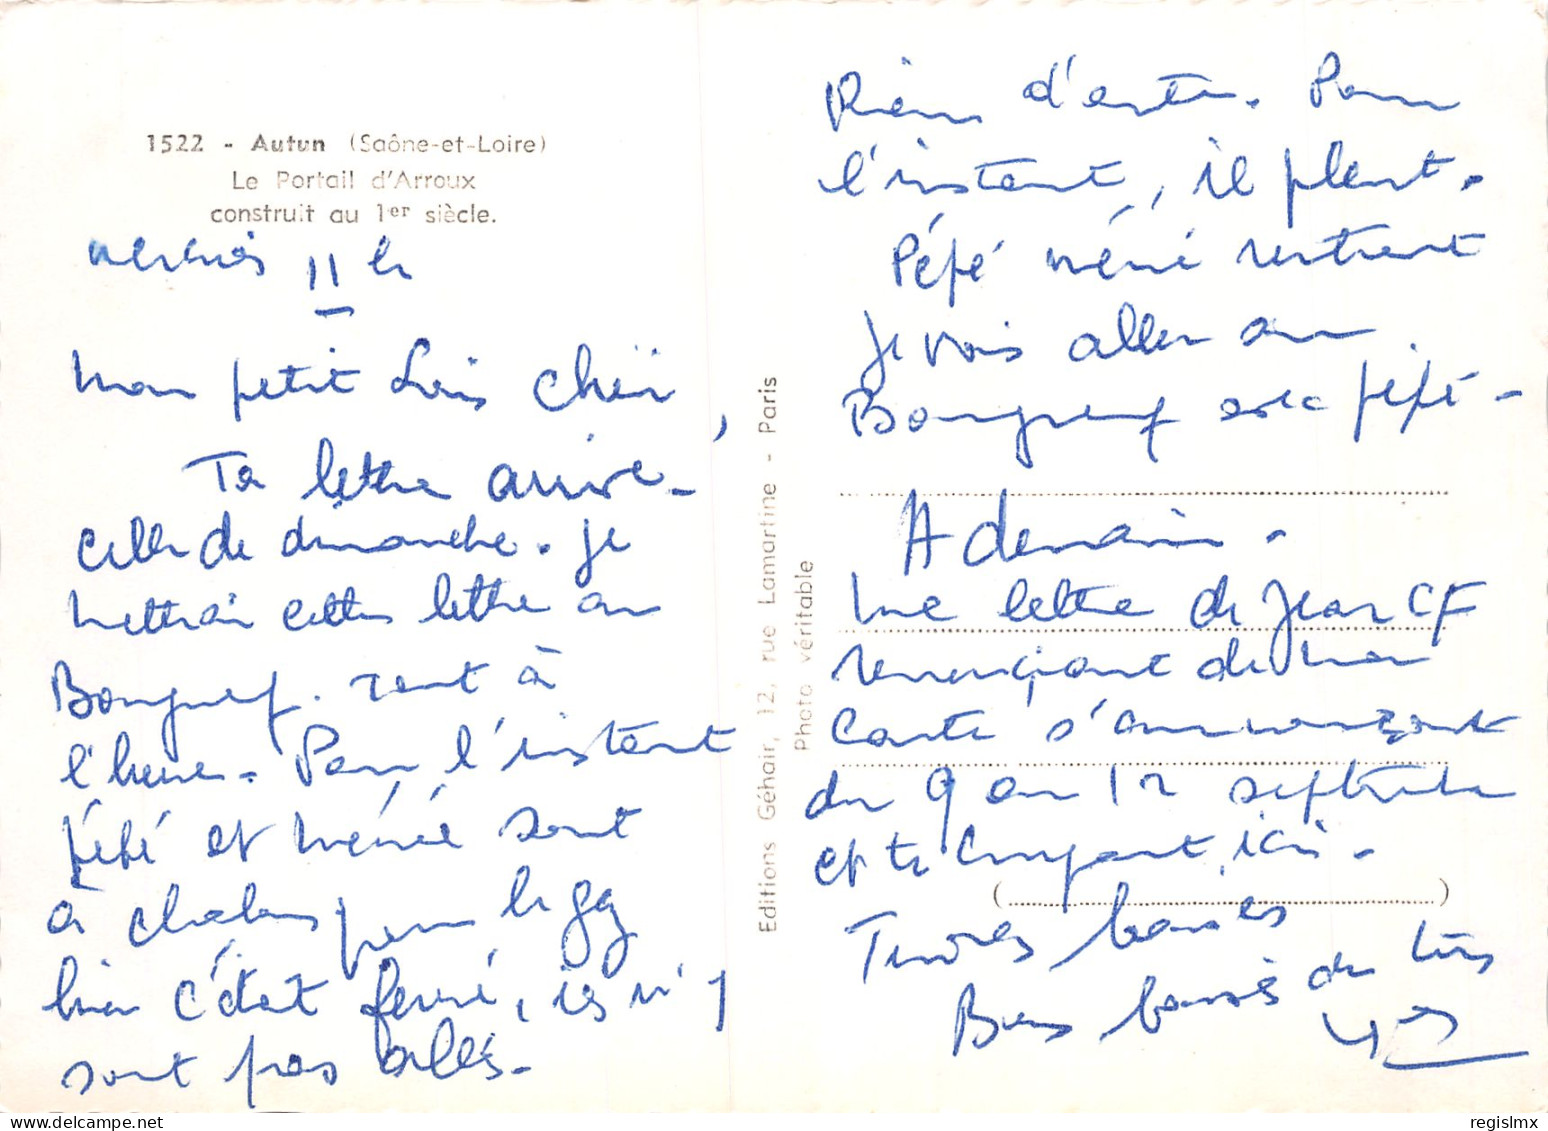 1522 - Autun (Saône-et-Loire)
Le Portail d'Arroux
construit au 1er siècle.
11 h
Mon petit chéri,
Ta lettre arrive -
celle de dimanche. Je
mettrai cette lettre au
tout à
l'heure. Pour l'instant
pépé et mémé sont
à chalon pour le
hier c'était fermé, ils n'y
sont pas allés.
Editions Géhair, 12, rue Lamartine - Paris
Photo véritable
Rien d'autre. Pour
l'instant, il pleut.
Pépé mémé rentrent
Je vais aller au
avec pépé -
A demain -
Une lettre de Jean CF
renonçant de
carte s'annonçant
du 9 au 12 septembre
et te croyant ici.
Tendres baisers
Bons baisers de
regislmx